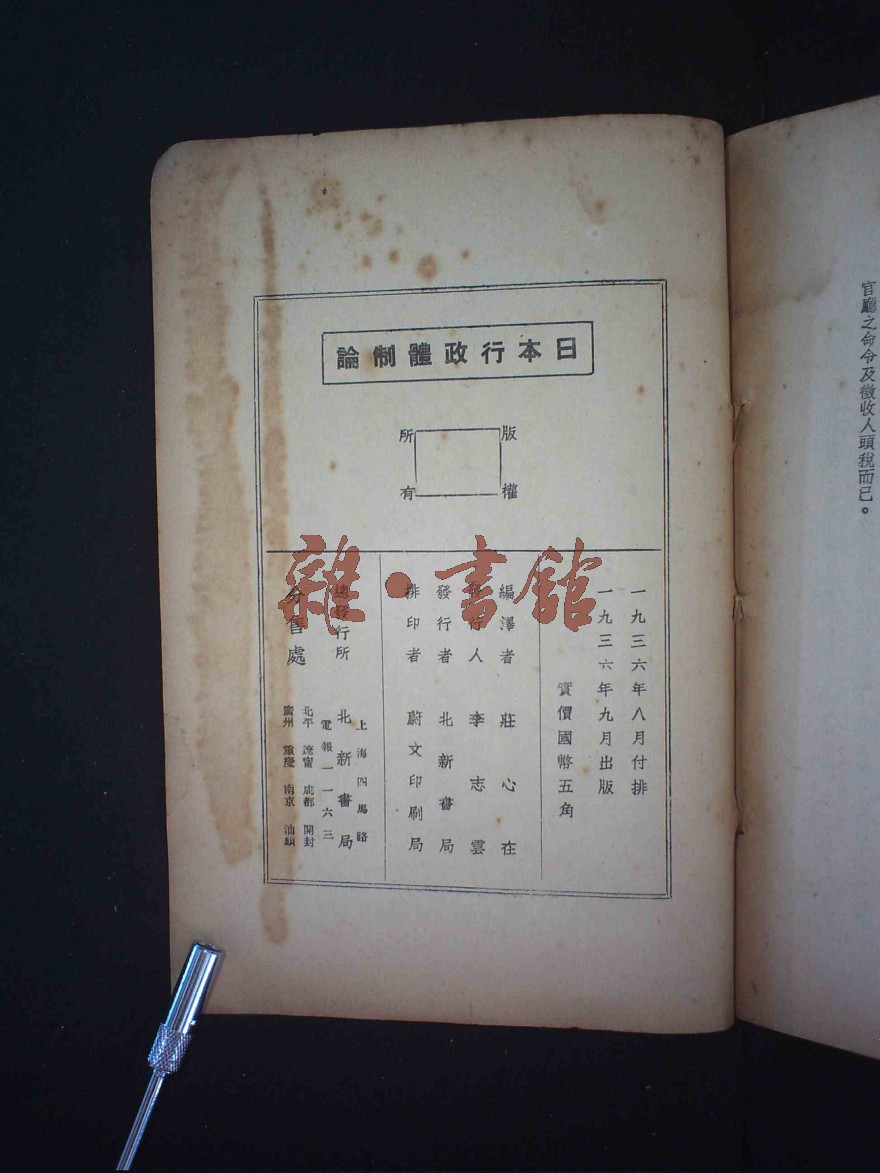 官廳之命令及徵收人頭稅而已。
日本行政體制論
版權
所有
一九三六年八月付排
一九三六年九月出版
實價國幣五角
編譯者 莊心在
發行人 李志雲
發行者 北新書局
排印者 蔚文印刷局
上海四馬路
總發行所 北新書局
電報一一六三
分售處
北平 遼甯 成都 開封
廣州 重慶 南京 汕頭
雜·書館